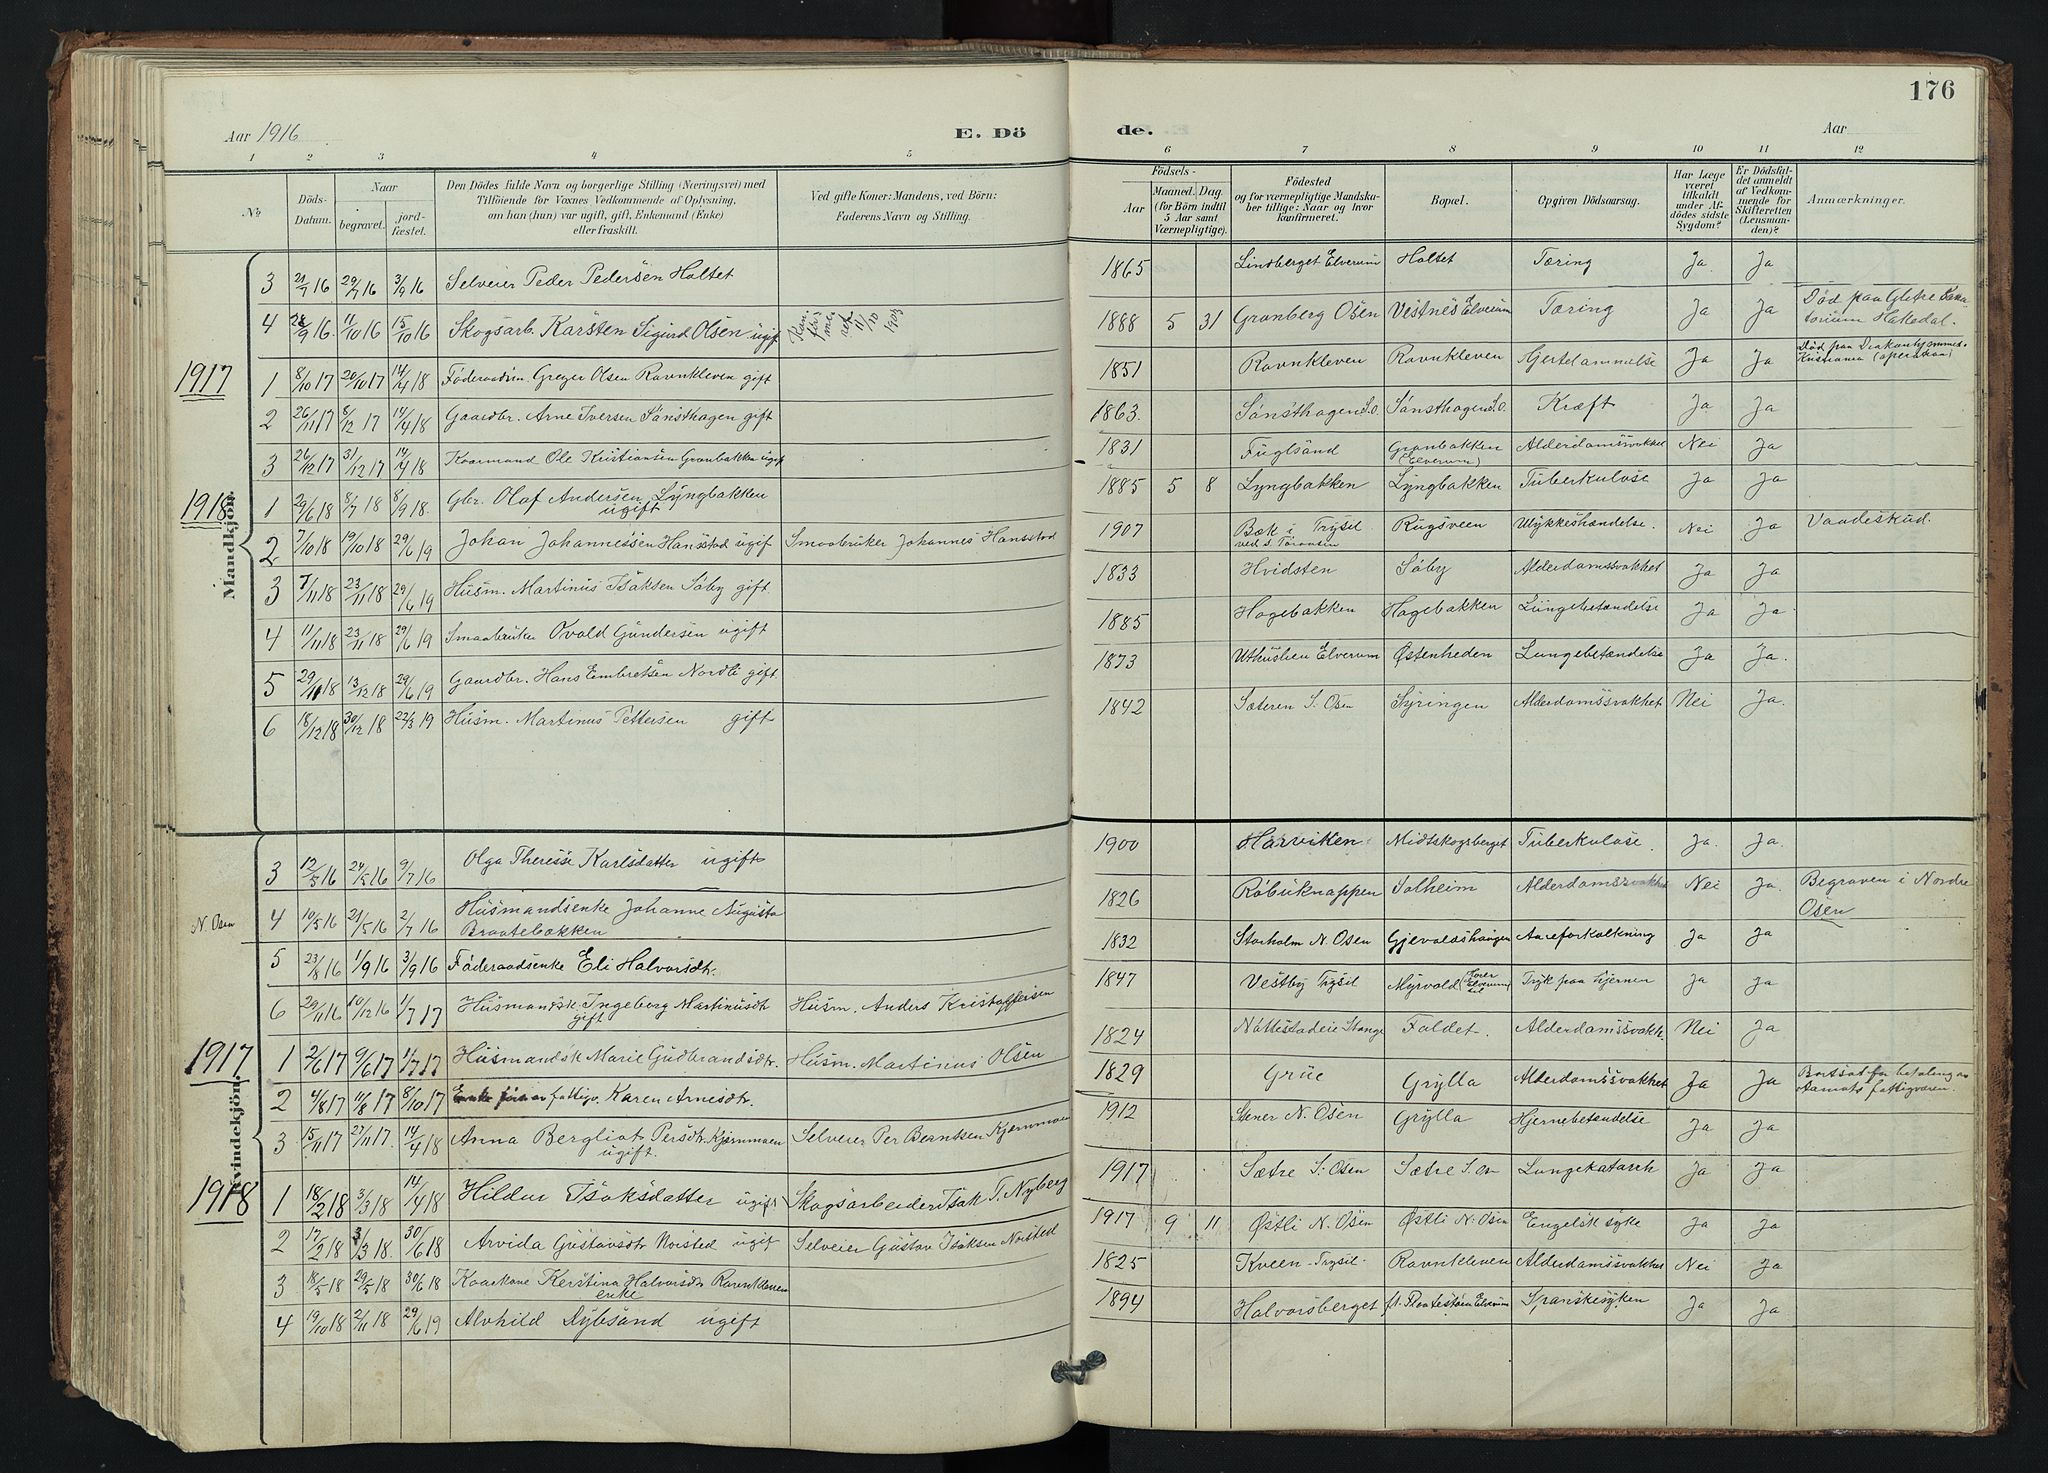 176
Aar 1916
E. Dö
de.
Aar
1 2 3 4 5 6 7 8 9 10 11 12
No
Döds-
Datum.
Naar
begravet.
jord-
fæstet.
Den Dödes fulde Navn og borgerlige Stilling (Næringsvei) med
Tilföiende for Voxnes Vedkommende af Oplysning,
om han (hun) var ugift, gift, Enkemand (Enke)
eller fraskilt.
Ved gifte Koner: Mandens, ved Börn:
Faderens Navn og Stilling.
Födsels-
Aar
Maaned. Dag.
(for Börn indtil
5 Aar samt
Værnepligtige).
Födested
og for værnepligtige Mandska-
ber tillige: Naar og hvor
konfirmeret.
Bopæl.
Opgiven Dödsaarsag.
Har Læge
været
tilkaldt
under Af-
dödes sidste
Sygdom?
Er Dödsfal-
det anmeldt
af Vedkom-
mende for
Skifteretten
(Lensman-
den)?
Anmærkninger.
Mandkjön.
3 21/7 16 29/7 16 3/9 16 Selveier Peder Pedersen Holtet 1865 Lindberget Elverum Holtet Tæring Ja Ja
4 28/9 16 11/10 16 15/10 16 Skogsarb. Karsten Sigurd Olsen ugift Konfirmeret 11/10 1903 1888 5 31 Granberg Osen Vestnes Elverum Tæring Ja Ja Död paa Glitre Sana-
torium Hakedal.
1917
1 8/10 17 20/10 17 14/4 18 Föderaadsm. Greger Olsen Ravnkleven gift 1851 Ravnkleven Ravnkleven Ja Ja Död paa
Kristiania (operation)
2 26/11 17 8/12 17 14/4 18 Gaardbr. Arne Iversen Sönsthagen gift 1863 Sönsthagen S.O. Sönsthagen S.O. Kræft Ja Ja
3 26/12 17 31/12 17 14/4 18 Kaarmand Ole Kristiansen Granbakken ugift 1831 Fuglsand Granbakken
(Elverum) Alderdomssvakhet Nei Ja
1918
1 29/6 18 8/7 18 8/9 18. Gbr. Olaf Andersen Lyngbakken
ugift 1885 5 8 Lyngbakken Lyngbakken Tuberkulose Ja Ja
2 7/10 18 19/10 18 29/6 19 Johan Johannessen Hansstad ugif Smaabruker Johannes Hansstad 1907 Bæk i Trysil
ved s. Rugsveen Ulykkeshændelse. Nei Ja Vaadeskud.
3 7/11 18 23/11 18 29/6 19 Husm. Martinus Isaksen Söby gift 1833 Hvidsten Söby Alderdomssvakhet Ja Ja
4 11/11 18 23/11 18 29/6 19 Smaabruker Ovald Gundersen ugift 1885 Hagebakken Hagebakken Lungebetændelse Ja Ja
5 29/11 18 13/12 18 29/6 19 Gaardbr. Hans Embretsen Nordli gift 1873 Uthuslien Elverum Østenheden Lungebetændelse Ja Ja.
6 18/12 18 30/12 18 22/3 19 Husm. Martinus Pettersen gift 1842 Sæteren S. Osen Skyringen Alderdomssvakhet Nei Ja.
Kvindekjön.
3 12/5 16 24/5 16 9/7 16 Olga Theresse Karlsdatter ugift 1900 Harviken Midtskogsberget Tuberkulose. Ja. Ja.
N. Osen
4 10/5 16 21/5 16 2/7 16 Husmandsenke Johanne Augusta
Braatebakken 1826 Röbuknappen Solheim Alderdomssvakhet Nei Ja. Begraven i Nordre
Osen
5 23/8 16 1/9 16 3/9 16 Föderaadsenke Eli Halvorsdtr. 1832 Storholm N. Osen Gjevoldshaugen Aareforkalkning Ja Ja
6 29/11 16 10/12 16 1/7 17 Husmandsk. Ingeborg Martinusdtr
gift Husm. Anders Kristoffersen 1847 Vestby Trysil Myrvold Tryk paa hjernen Ja Ja
1917
1 2/6 17 9/6 17 1/7 17 Husmandsk Marie Gudbrandsdtr. Husm. Martinus Olsen 1824 Stange Faldet. Alderdomssvakh. Nei Ja
2 4/8 17 11/8 17 8/10 17 Enke fattigv. Karen Arnesdtr. 1829 Grue Grylla Alderdomssvakhet Ja Ja Bortsat for betaling av
Aamots fattigvæsen.
3 15/11 17 27/11 17. 14/4 18 Anna Bergliot Persdtr. Kjernmoen
ugift. Selveier Per Berntsen Kjernmoen 1912 Stener N. Osen Grylla Hjernebetændelse Ja Ja
1918
1 18/2 18 3/3 18 14/4 18 Hildur Isaksdatter ugift Skogsarbeider Isak T. Nyberg 1917 Sætre S. Osen Sætre S. Os Lungekatarrh Ja Ja
2 17/2 18 3/3 18. 30/6 18 Arvida Gustavsdtr Moisted ugif Selveier Gustav Isaksen Moisted 1917 9 11 Østli N. Osen Østli N. Osen Engelsk syke Ja Ja
3 18/5 18 29/5 18 30/6 18 Kaarkone Kerstina Halvorsdtr Ravnkleven
enke 1825 Kveen Trysil Ravnkleven Alderdomssvakhet Nei Ja
4 19/10 18 2/11 18 29/6 19 Alvhild Dybsand ugift 1894 Halvorsberget Elverum Spanskesyken Ja Ja